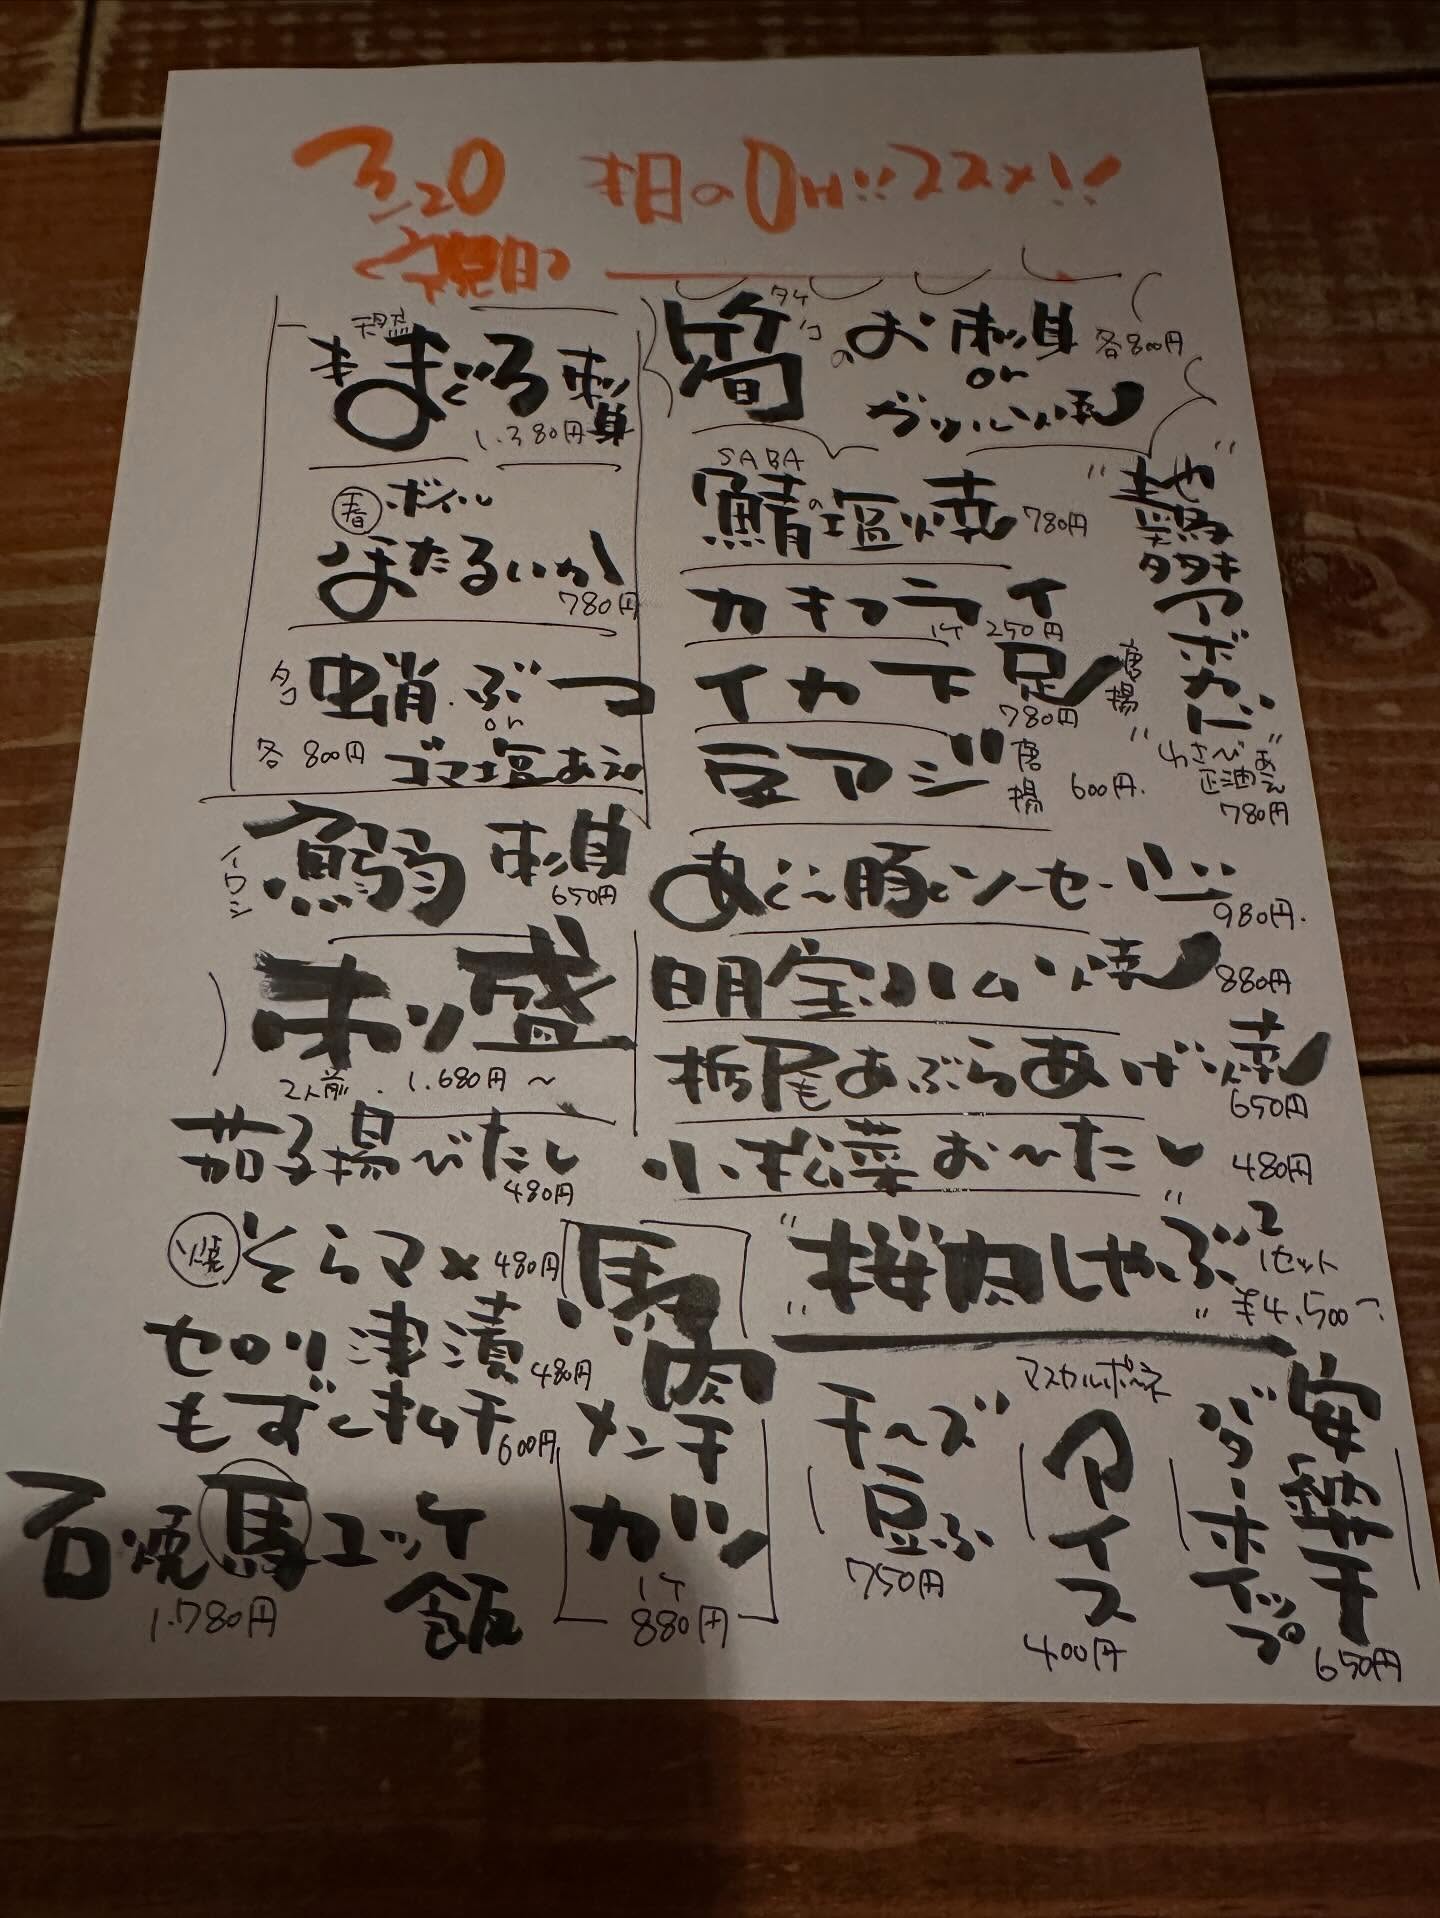 3/20 本日のOH!!ススメ!!
<祝日>
天然
本まぐろ刺身
1.380円
春 ボイル
ほたるいか
780円
タコ 蛸・ぶつ
or
各800円 ゴマ塩あえ
イワシ 鰯刺身
650円
刺し盛
2人前 1.680円〜
茄子揚〜びたし
480円
焼 そらマメ 480円
セロリ浅漬 480円
もずくキムチ 600円
石焼馬ユッケ飯
1.780円
筍 タケノコ のお刺身 各800円
or
グリル焼
SABA
鯖の塩焼 780円
カキフライ
1ケ 250円
イカ下足 唐揚
780円
豆アジ 唐揚 600円.
"地鶏
タタキ
アボカド"
わさび正油あえ
780円
あぐー豚ソーセージ
980円.
明宝ハム焼 880円
栃尾あぶらあげ焼
650円
小松菜お〜たし 480円
"桜肉しゃぶ2"
1セット
¥4,500〜
馬肉
メンチ
カツ
1ケ
880円
チーズ
豆ふ
750円
マスカルポーネ
アイス
400円
安納芋
バターホイップ
650円